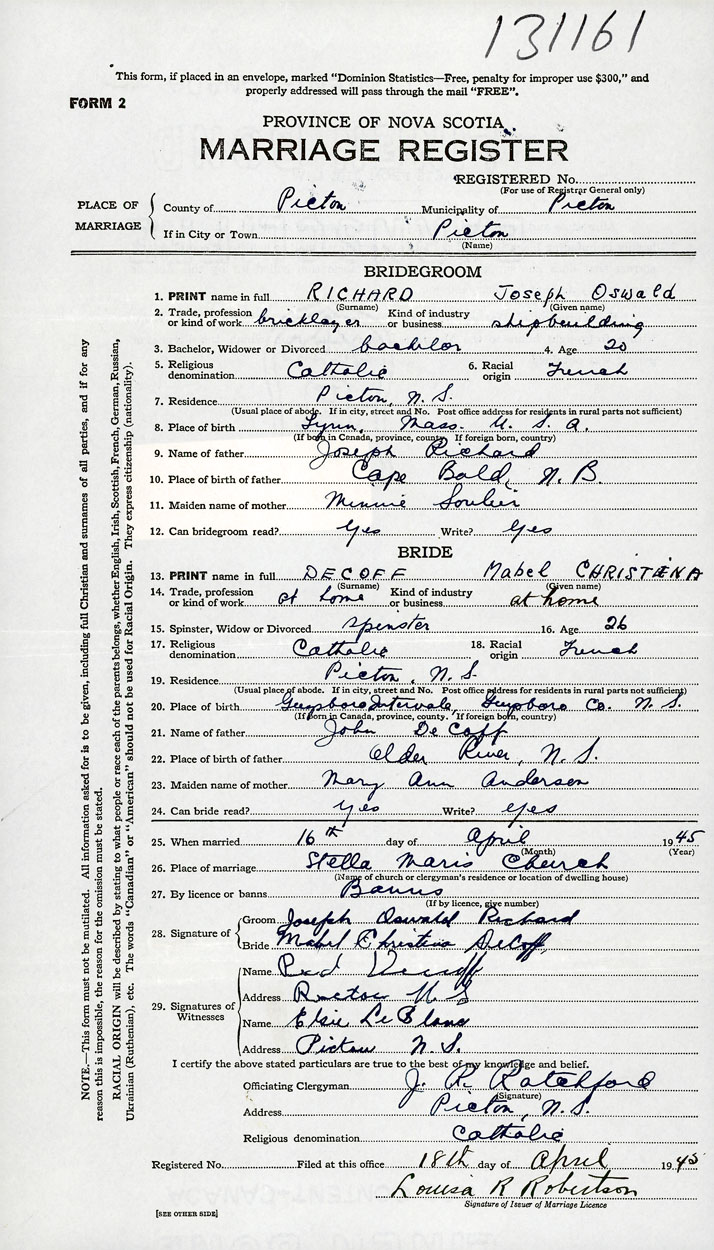 131161
This form, if placed in an envelope, marked "Dominion Statistics—Free, penalty for improper use $300," and
properly addressed will pass through the mail "FREE".
FORM 2
PROVINCE OF NOVA SCOTIA
MARRIAGE REGISTER
REGISTERED No.
(For use of Registrar General only)
PLACE OF MARRIAGE
County of Picton Municipality of Picton
If in City or Town Picton
(Name)
BRIDEGROOM
1. PRINT name in full RICHARD Joseph Oswald
(Surname) (Given name)
2. Trade, profession or kind of work bricklayer Kind of industry or business shipbuilding
3. Bachelor, Widower or Divorced bachelor 4. Age 20
5. Religious denomination Catholic 6. Racial origin French
7. Residence Picton, N.S.
(Usual place of abode. If in city, street and No. Post office address for residents in rural parts not sufficient)
8. Place of birth Lynn, Mass. U.S.A.
(If born in Canada, province, county. If foreign born, country)
9. Name of father Joseph Richard
10. Place of birth of father Cape Bald, N.B.
11. Maiden name of mother Minnie Soulier
12. Can bridegroom read? Yes Write? Yes
BRIDE
13. PRINT name in full DECOFF Mabel CHRISTENA
(Surname) (Given name)
14. Trade, profession or kind of work at home Kind of industry or business at home
15. Spinster, Widow or Divorced spinster 16. Age 26
17. Religious denomination Catholic 18. Racial origin French
19. Residence Picton, N.S.
(Usual place of abode. If in city, street and No. Post office address for residents in rural parts not sufficient)
20. Place of birth Guysboro Intervale, Guysboro Co. N.S.
(If born in Canada, province, county. If foreign born, country)
21. Name of father John DeCoff
22. Place of birth of father Older River, N.S.
23. Maiden name of mother Mary Ann Anderson
24. Can bride read? yes Write? yes
25. When married 16th day of April 1945
(Month) (Year)
26. Place of marriage Stella Maris Church
(Name of church or clergyman's residence or location of dwelling house)
27. By licence or banns Banns
(If by licence, give number)
28. Signature of
Groom Joseph Oswald Richard
Bride Mabel Christina DeCoff
29. Signatures of Witnesses
Name
Address N S
Name Elsie LeBlanc
Address Pictou N.S.
I certify the above stated particulars are true to the best of my knowledge and belief.
Officiating Clergyman J. R. Ratchford
(Signature)
Address Picton, N.S.
Religious denomination Catholic
Registered No. Filed at this office 18th day of April 1945
Louisa R Robertson
Signature of Issuer of Marriage Licence
[SEE OTHER SIDE]
NOTE.—This form must not be mutilated. All information asked for is to be given, including full Christian and surnames of all parties, and if for any
reason this is impossible, the reason for the omission must be stated.
RACIAL ORIGIN will be described by stating to what people or race each of the parents belongs, whether English, Irish, Scottish, French, German, Russian,
Ukrainian (Ruthenian), etc. The words "Canadian" or "American" should not be used for Racial Origin. They express citizenship (nationality).